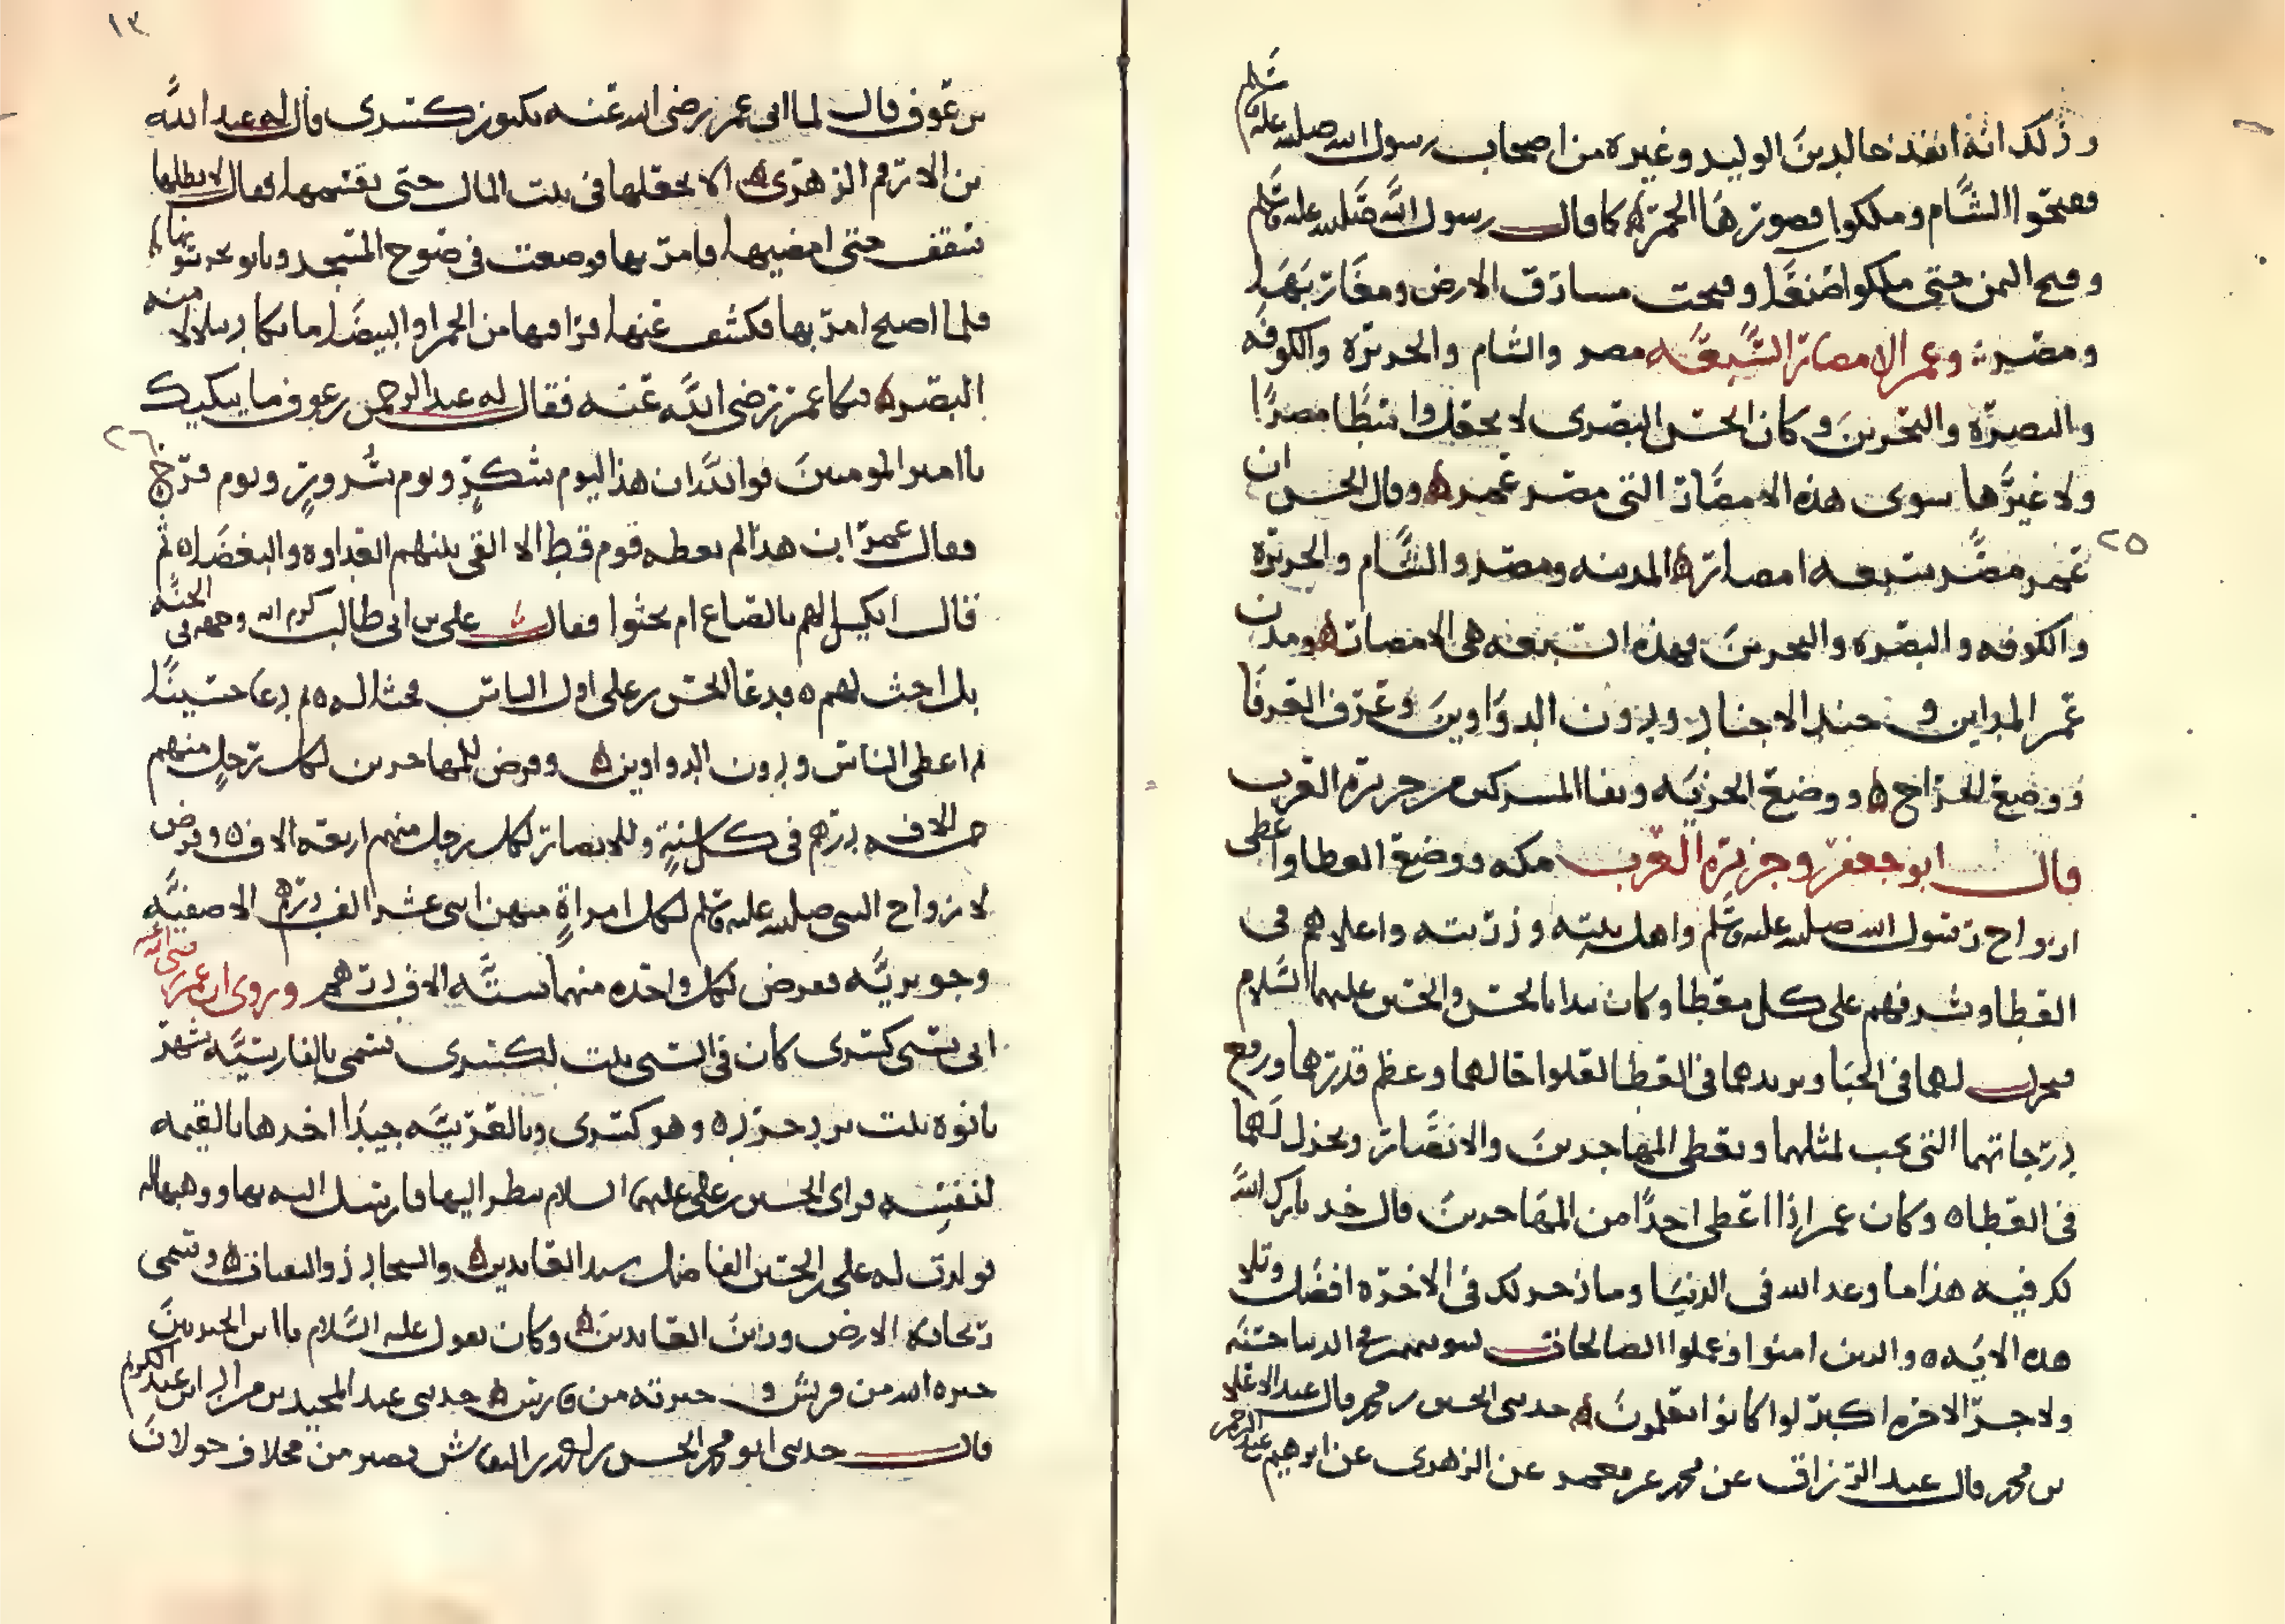 وذلك انه انفذ خالد بن الوليد وغيره من اصحاب رسول الله صلى الله عليه وسلم
ففتحوا الشام وملكوا قصورها الحمر كما قال رسول الله صلى الله عليه وسلم
وفتح اليمن حتى ملكوا صنعا وفتحت مشارق الارض ومغاربها
ومصر وعمر الامصار السبعه مصر والشام والجزيرة والكوفه
والبصرة والبحرين وكان الحسن البصري لا يجعل واسطا مصرا
ولا غيرها سوى هذه الامصار التي مصر عمر وقال الحسن ان
عمر مصر سبعه امصار المدينه ومصر والشام والجزيرة
والكوفه والبصره والبحرين فهذه السبعه هي الامصار ومدن
عمر المداين وجند الاجناد ودون الدواوين وعرف العرفا
ووضع الخراج ووضع الجزيه ونفا المشركين من جزيرة العرب
قال ابو جعفر وجزيرة العرب مكه ووضع العطا واعطى
ازواج رسول الله صلى الله عليه وسلم واهل بيته وذريته واعلاهم في
العطا وشرفهم على كل معطا وكان يبدا بالحسن والحسين عليهما السلام
فيجزل لهما في الحبا ويزيدهما في العطا لعلو حالهما وعظم قدرهما ورفع
درجاتهما التي تجب لمثلهما ويعطي المهاجرين والانصار ويجزل لهما
في العطا وكان عمر اذا اعطى احدا من المهاجرين قال خذ بارك الله
لك فيه هذا ما وعد الله في الدنيا وما ذخر لك في الاخره افضل وتلا
هذه الايه والذين امنوا وعملوا الصالحات لنبوينهم في الدنيا حسنه
ولاجر الاخره اكبر لو كانوا يعلمون حدثني الحسن بن محمد قال عبد الاعلى
بن محمد قال عبد الرزاق عن محمد عن معمر عن الزهري عن ابرهيم بن عبد الرحمن
٢٥
١٣
بن عوف قال لما اتى عمر رضي الله عنه بكنوز كسرى قال له عبد الله
بن الارقم الزهري الا تجعلها في بيت المال حتى تقسمها فقال لا يظلها
سقف حتى امضيها فامر بها فوضعت في صوح المسجد وباتو يحرسونها
فلما اصبح امر بها فكشف عنها فرا فيها من الحمرا والبيضا ما يكاد يتلالا منه
البصر فبكا عمر رضي الله عنه فقال له عبد الرحمن بن عوف ما يبكيك
٢٦
يا امير المومنين فوالله ان هذا ليوم شكر ويوم سرور ويوم فرح
فقال عمر ان هذا لم يعطه قوم قط الا القي بينهم العداوه والبغضا ثم
قال انكيل لهم بالصاع ام نحثوا فقال علي بن ابي طالب كرم الله وجهه في الجنة
بل احث لهم فدعا الحسن بن علي اول الناس فحثا له ثم دعا حسينا
ثم اعطى الناس ودون الدواوين وفرض للمهاجرين لكل رجل منهم
خمسه الاف درهم في كل سنة وللانصار لكل رجل منهم اربعه الاف وفرض
لازواج النبي صلى الله عليه وسلم لكل امراة منهن اثني عشر الف درهم الا صفيه
وجويريه فعرض لكل واحده منهما سته الاف درهم وروى ان عمر رضي الله عنه
اتى بسبي كسرى كان في السبي بنت لكسرى تسمى بالفارسيه شهر
بانوه بنت يزدجرد وهو كسرى وبالعربيه جيدا اخذها بالقيمه
لنفسه فراى الحسين بن علي عليهما السلام ينظر اليها فارسل اليه بها ووهبها له
فولدت له علي بن الحسين الفاضل سيد العابدين والسجاد ذو الثفنات وتسمى
ريحانه الارض وزين العابدين وكان يقول عليه السلام يا ابن الخيرتين
خيره الله من قريش وخيرته من فارس حدثني عبد المجيد بن عبد الكريم
قال حدثني ابو محمد الحسن بن النقاش بصير من مخلاف خولان